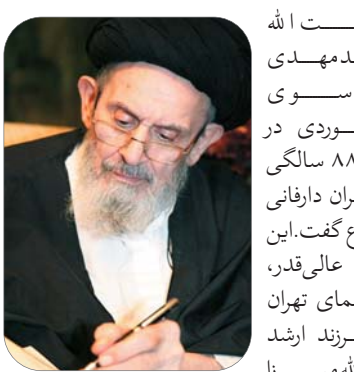 ـت الله
ـدمهـدی
سـوی
ـوردی در
۸۸ سالگی
ـران دارفانی
ـع گفت.این
عالی‌قدر،
ـمای تهران
ـرزند ارشد